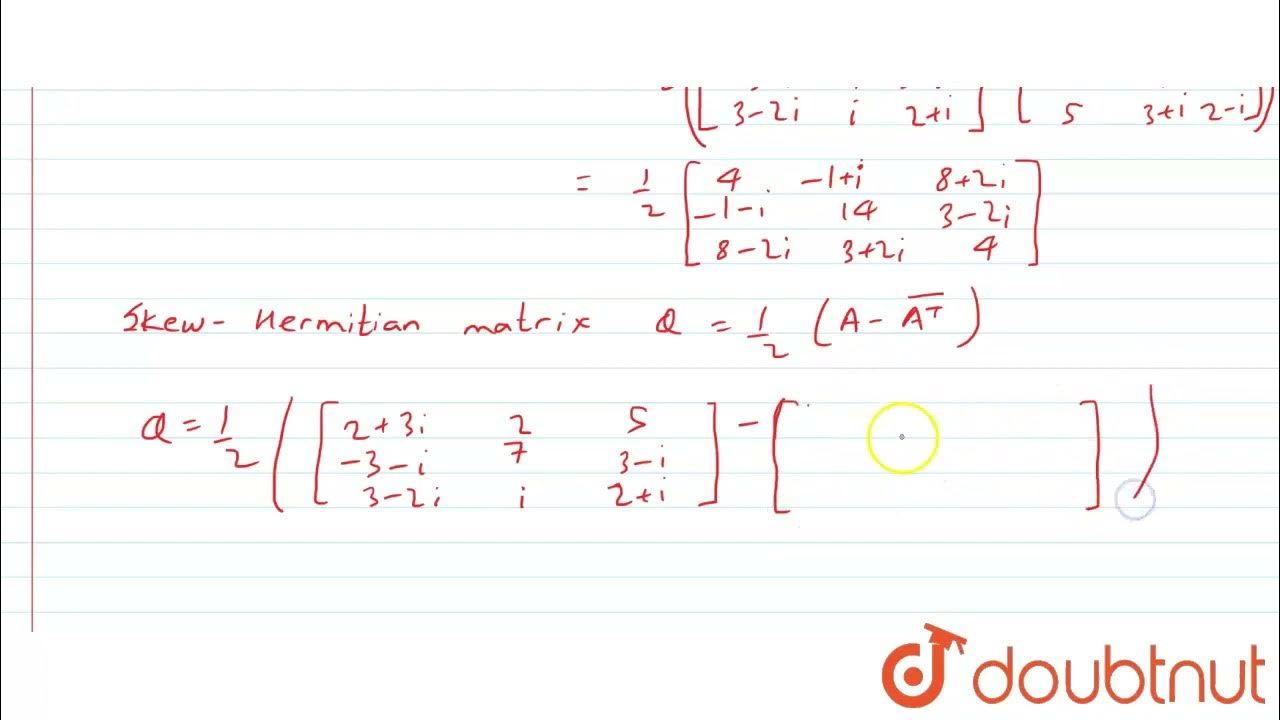 3-2i i 2+i ] [ 5 3+i 2-i ])
= 1/2 [ 4 -1+i 8+2i
-1-i 14 3-2i
8-2i 3+2i 4 ]
Skew-Hermitian matrix Q = 1/2 (A - A̅T̅)
Q = 1/2 ( [ 2+3i 2 5 ] - [ ] )
-3-i 7 3-i
3-2i i 2+i
doubtnut